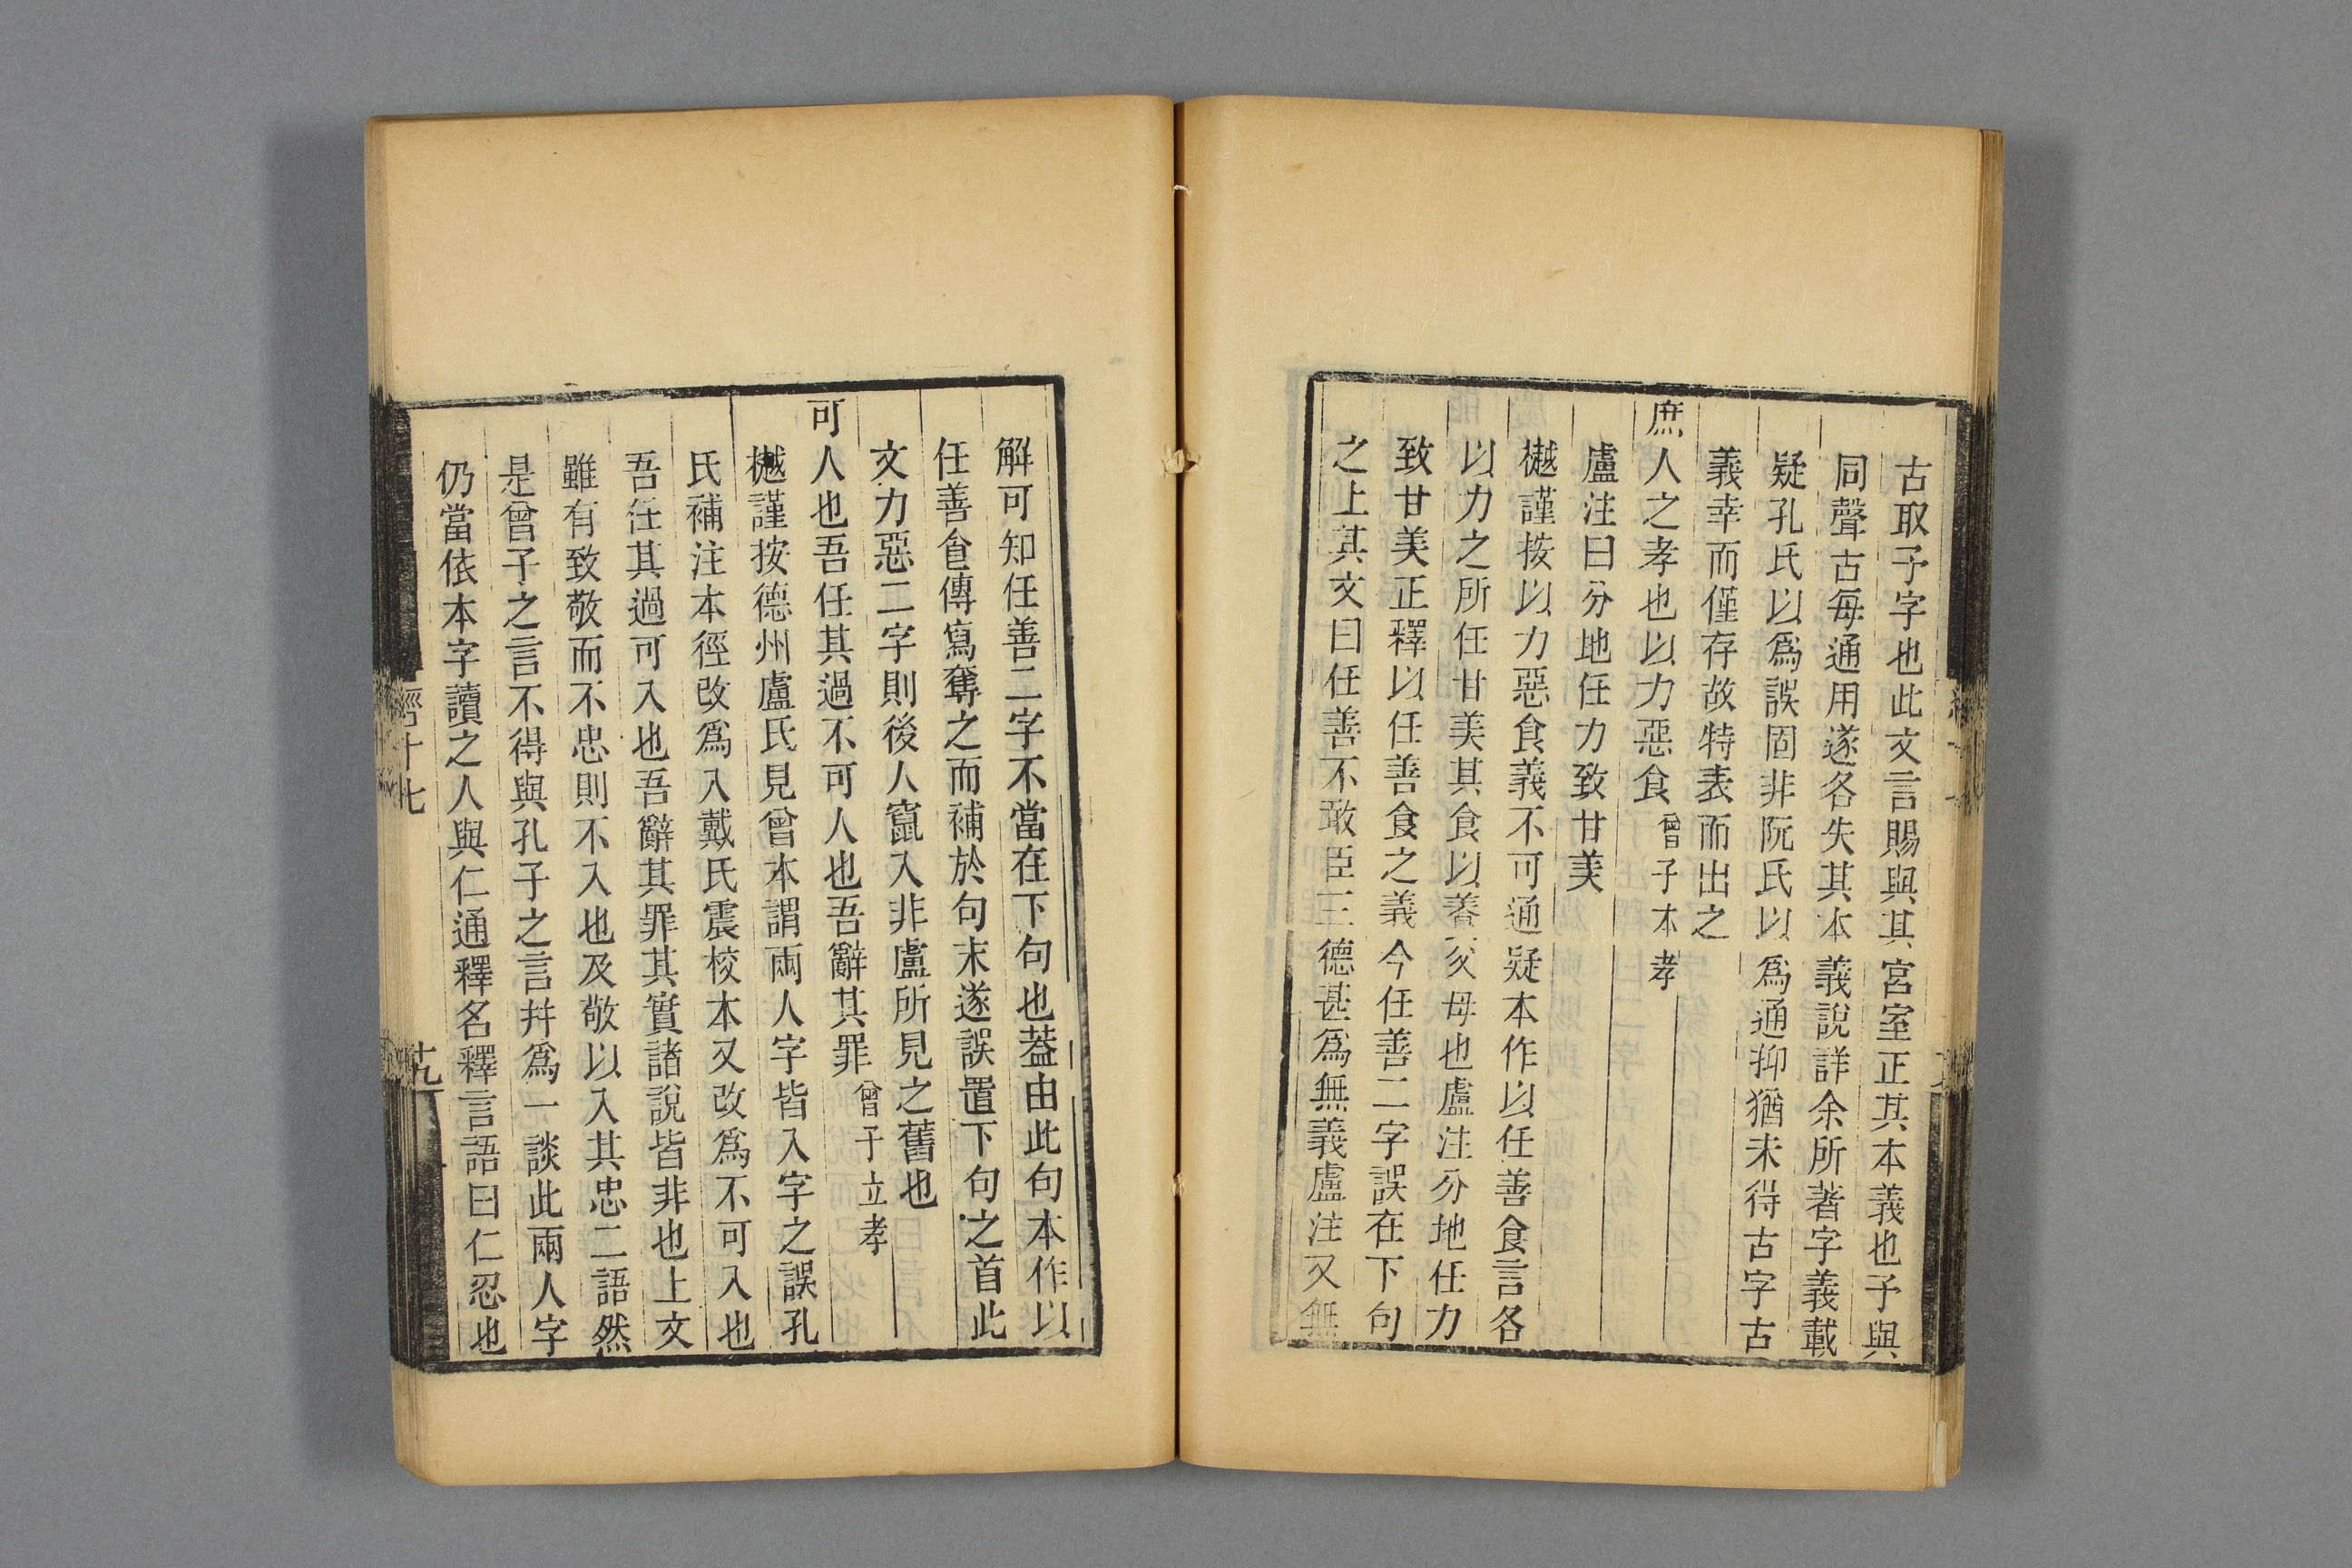 古取予字也此文言賜與其宮室正其本義也予與
同聲古每通用遂各失其本義說詳余所著字義載
疑孔氏以爲誤固非阮氏以爲通抑猶未得古字古
義幸而僅存故特表而出之
庶人之孝也以力惡食曾子本孝
盧注曰分地任力致甘美
樾謹按以力惡食義不可通疑本作以任善食言各
以力之所任甘美其食以養父母也盧注分地任力
致甘美正釋以任善食之義今任善二字誤在下句
之上其文曰任善不敢臣三德甚爲無義盧注又無
解可知任善二字不當在下句也葢由此句本作以
任善食傳寫奪之而補於句末遂誤置下句之首此
文力惡二字則後人竄入非盧所見之舊也
可人也吾任其過不可人也吾辭其罪曾子立孝
樾謹按德州盧氏見曾本謂兩人字皆入字之誤孔
氏補注本徑改爲入戴氏震校本又改爲不可入也
吾任其過可入也吾辭其罪其實諸說皆非也上文
雖有致敬而不忠則不入也及敬以入其忠二語然
是曾子之言不得與孔子之言幷爲一談此兩人字
仍當依本字讀之人與仁通釋名釋言語曰仁忍也
經十七
十九